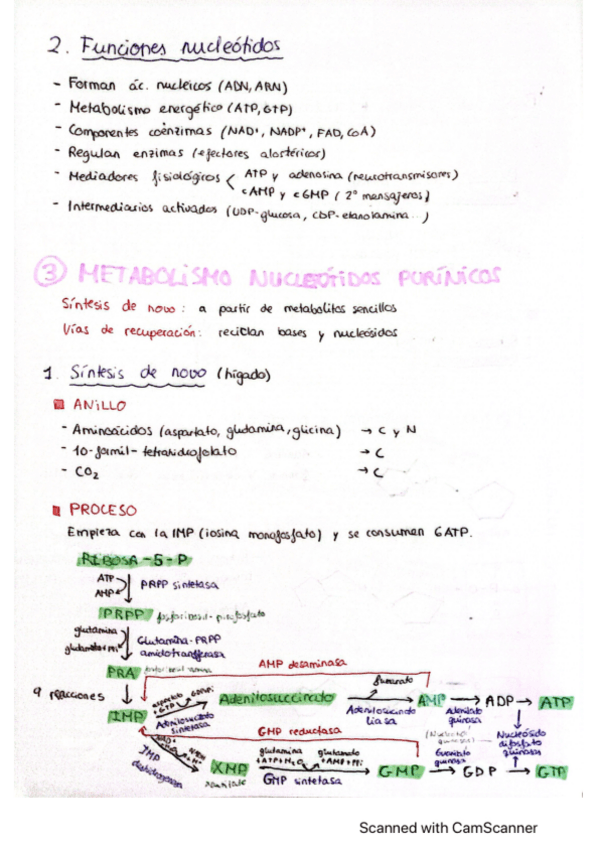 2. Funciones nucleótidos
- Forman ác. nucleicos (ADN, ARN)
- Metabolismo energético (ATP, GTP)
- Componentes coenzimas (NAD+, NADP+, FAD, CoA)
- Regulan enzimas (efectores alostéricos)
- Mediadores fisiológicos < ATP y adenosina (neurotransmisores)
cAMP y cGMP (2º mensajeros)
- Intermediarios activados (UDP-glucosa, CDP-etanolamina...)
③ METABOLISMO NUCLEÓTIDOS PURÍNICOS
Síntesis de novo: a partir de metabolitos sencillos
Vías de recuperación: reciclan bases y nucleósidos
1. Síntesis de novo (hígado)
ANILLO
- Aminoácidos (aspartato, glutamina, glicina) → C y N
- 10-formil-tetrahidrofolato → C
- CO2 → C
PROCESO
Empieza con la IMP (iosina monofosfato) y se consumen 6ATP.
RIBOSA-5-P
ATP
AMP
PRPP sintetasa
PRPP
glutamina
Glutamina-PRPP
amidotransferasa
PRA
AMP desaminasa
9 reacciones
fumarato
aspartato
+GTP
Adenilosuccinato
AMP → ADP → ATP
IMP
Adenilosuccinato
sintetasa
Adenilosuccinato
liasa
Adenilato
quinasa
GMP reductasa
Nucleósido
difosfato
quinasa
IMP
deshidrogenasa
glutamina
+ATP+H2O
glutamato
+AMP+PPi
Guanilato
quinasa
XMP
GMP sintetasa
GMP → GDP → GTP
Scanned with CamScanner